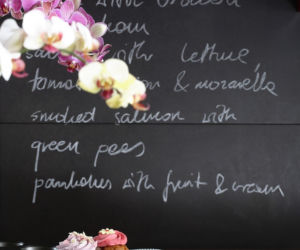 with
with lettuce,
& mozarella
smoked salmon with
green peas
pancakes with fruit & cream